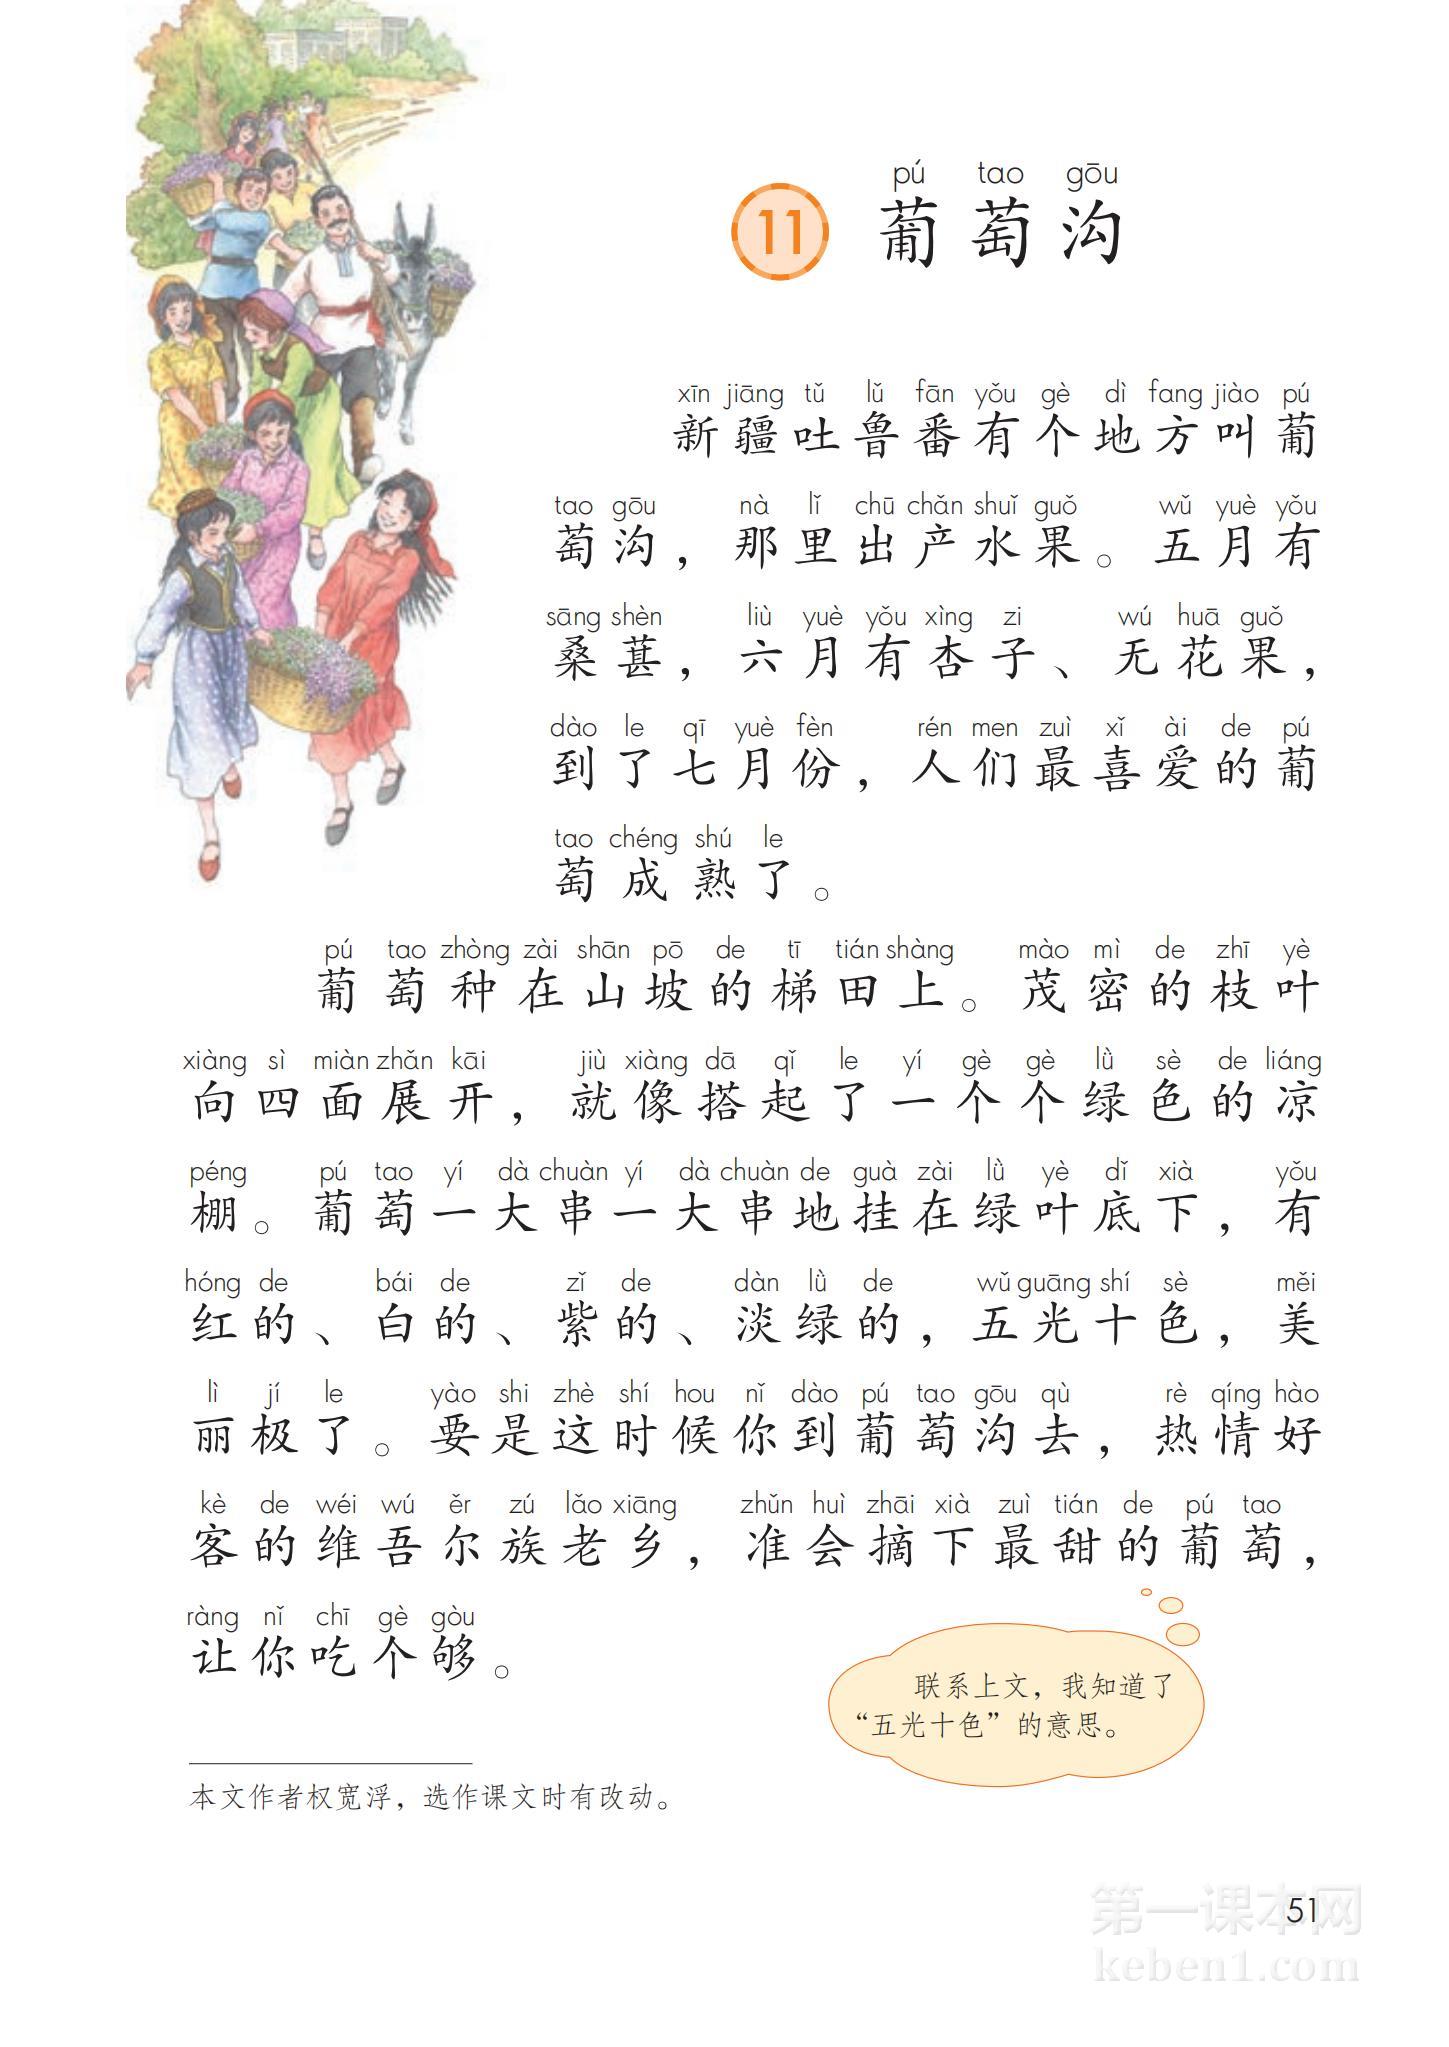 pú tao gōu
11 葡萄沟
xīn jiāng tǔ lǔ fān yǒu gè dì fang jiào pú
新疆吐鲁番有个地方叫葡
tao gōu nà lǐ chū chǎn shuǐ guǒ wǔ yuè yǒu
萄沟，那里出产水果。五月有
sāng shèn liù yuè yǒu xìng zi wú huā guǒ
桑葚，六月有杏子、无花果，
dào le qī yuè fèn rén men zuì xǐ ài de pú
到了七月份，人们最喜爱的葡
tao chéng shú le
萄成熟了。
pú tao zhòng zài shān pō de tī tián shàng mào mì de zhī yè
葡萄种在山坡的梯田上。茂密的枝叶
xiàng sì miàn zhǎn kāi jiù xiàng dā qǐ le yí gè gè lǜ sè de liáng
向四面展开，就像搭起了一个个绿色的凉
péng pú tao yí dà chuàn yí dà chuàn de guà zài lǜ yè dǐ xià yǒu
棚。葡萄一大串一大串地挂在绿叶底下，有
hóng de bái de zǐ de dàn lǜ de wǔ guāng shí sè měi
红的、白的、紫的、淡绿的，五光十色，美
lì jí le yào shi zhè shí hou nǐ dào pú tao gōu qù rè qíng hào
丽极了。要是这时候你到葡萄沟去，热情好
kè de wéi wú ěr zú lǎo xiāng zhǔn huì zhāi xià zuì tián de pú tao
客的维吾尔族老乡，准会摘下最甜的葡萄，
ràng nǐ chī gè gòu
让你吃个够。
联系上文，我知道了
“五光十色”的意思。
本文作者权宽浮，选作课文时有改动。
第一课本网
51
keben1.com